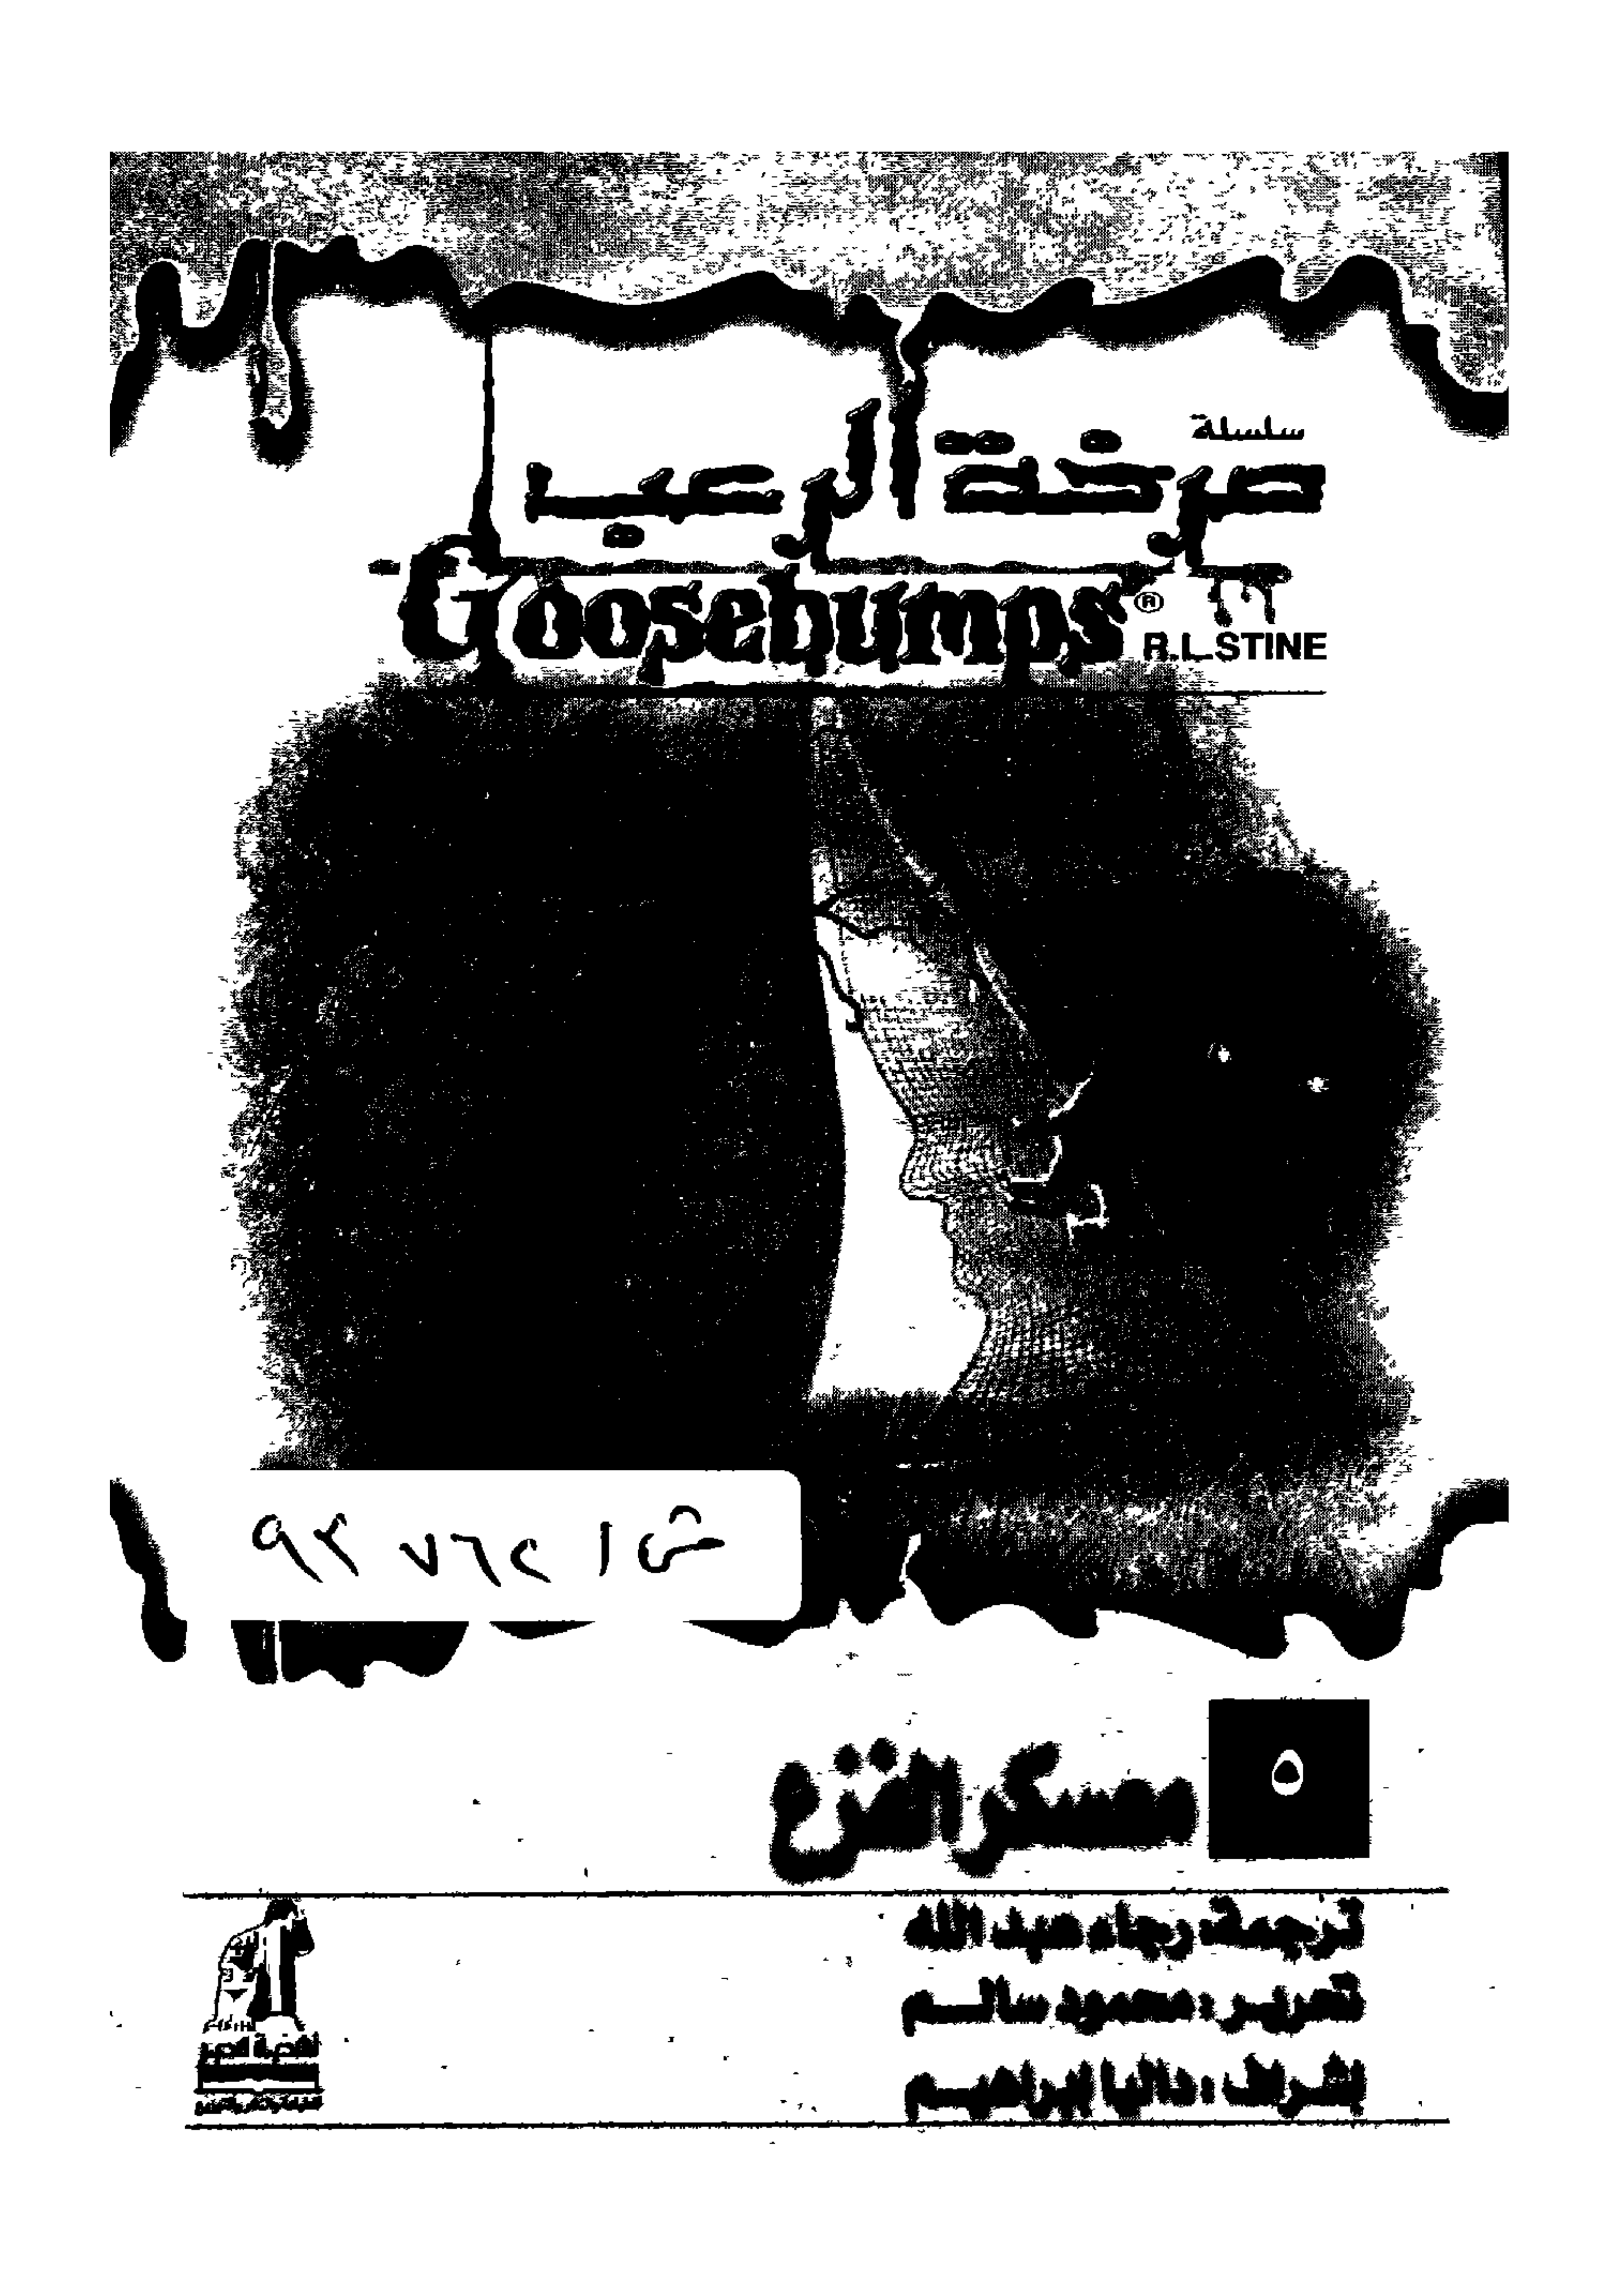 سلسلة
صرخة الرعب
Goosebumps®
R.L.STINE
٥
معسكر الفزع
ترجمة: رجاء عبد الله
تحرير: محمود سالم
إشراف: داليا إبراهيم
نهضة مصر